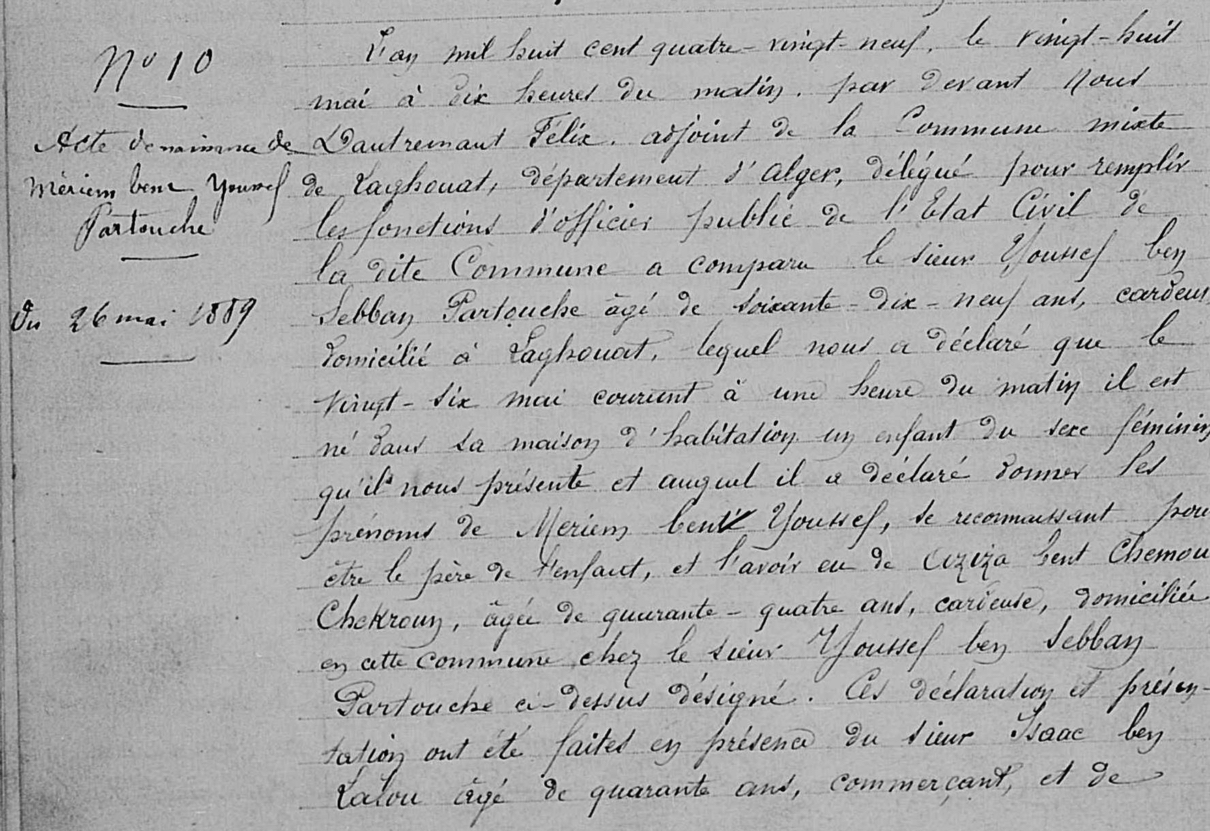 No 10
Acte de naissance de
Mériem bent Youssef
Partouche
du 26 mai 1889
L'an mil huit cent quatre-vingt-neuf, le vingt-huit
mai à dix heures du matin. par devant nous
Dautremant Félix, adjoint de la Commune mixte
de Laghouat, département d'Alger, délégué pour remplir
les fonctions d'officier public de l'Etat Civil de
la dite Commune a comparu le sieur Youssef ben
Sebban Partouche âgé de soixante-dix-neuf ans, cardeur
domicilié à Laghouat, lequel nous a déclaré que le
vingt-six mai courant à une heure du matin il est
né dans sa maison d'habitation un enfant du sexe féminin
qu'il nous présente et auquel il a déclaré donner les
prénoms de Meriem bent Youssef, se reconnaissant pour
être le père de l'enfant, et l'avoir eu de Aziza bent Chemou
Chekroun, âgée de quarante-quatre ans, cardeuse, domiciliée
en cette commune chez le sieur Youssef ben Sebban
Partouche ci-dessus désigné. Ces déclaration et présen-
tation ont été faites en présence du sieur Isaac ben
Lalou âgé de quarante ans, commerçant, et de